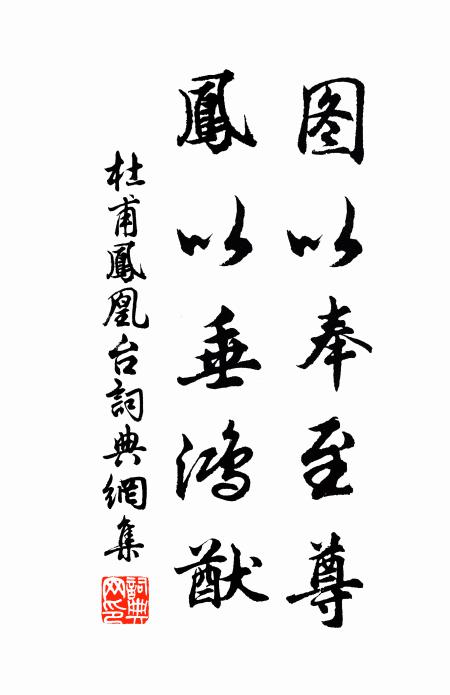 图以奉至尊
鳳以垂鴻猷
杜甫鳳凰台詞典網集
詞典网印